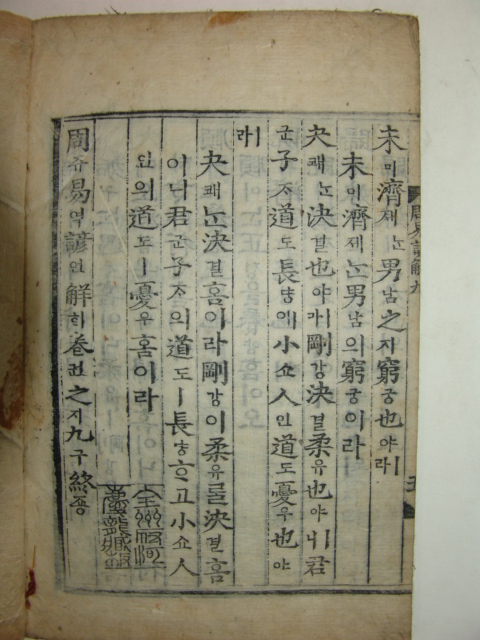 周易諺解九
未미濟졔ᄂᆞᆫ男남之지窮궁也야ㅣ라
未미濟졔ᄂᆞᆫ男남의窮궁이라
夬쾌ᄂᆞᆫ決결也야ㅣ라剛강決결柔유也야ㅣ니君
군子ᄌᆞ道도長댱애小쇼人인道도憂우也야
ㅣ라
夬쾌ᄂᆞᆫ決결홈이라剛강이柔유ᄅᆞᆯ決결홈
이니君군子ᄌᆞ의道도ㅣ長댱ᄒᆞ고小쇼人
인의道도ㅣ憂우홈이라
全州府河
慶龍藏板
周쥬易역諺언解ᄒᆡ卷권之지九구終죵